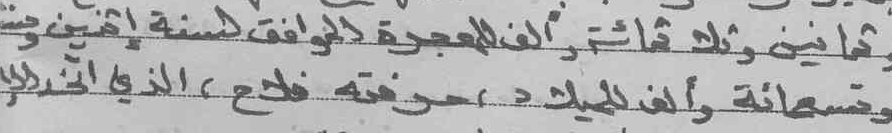 وثمانين وثلاثمائة وألف للهجرة الموافق لسنة إثنين وستين
وتسعمائة وألف للميلاد، حرفته فلاح، الذي